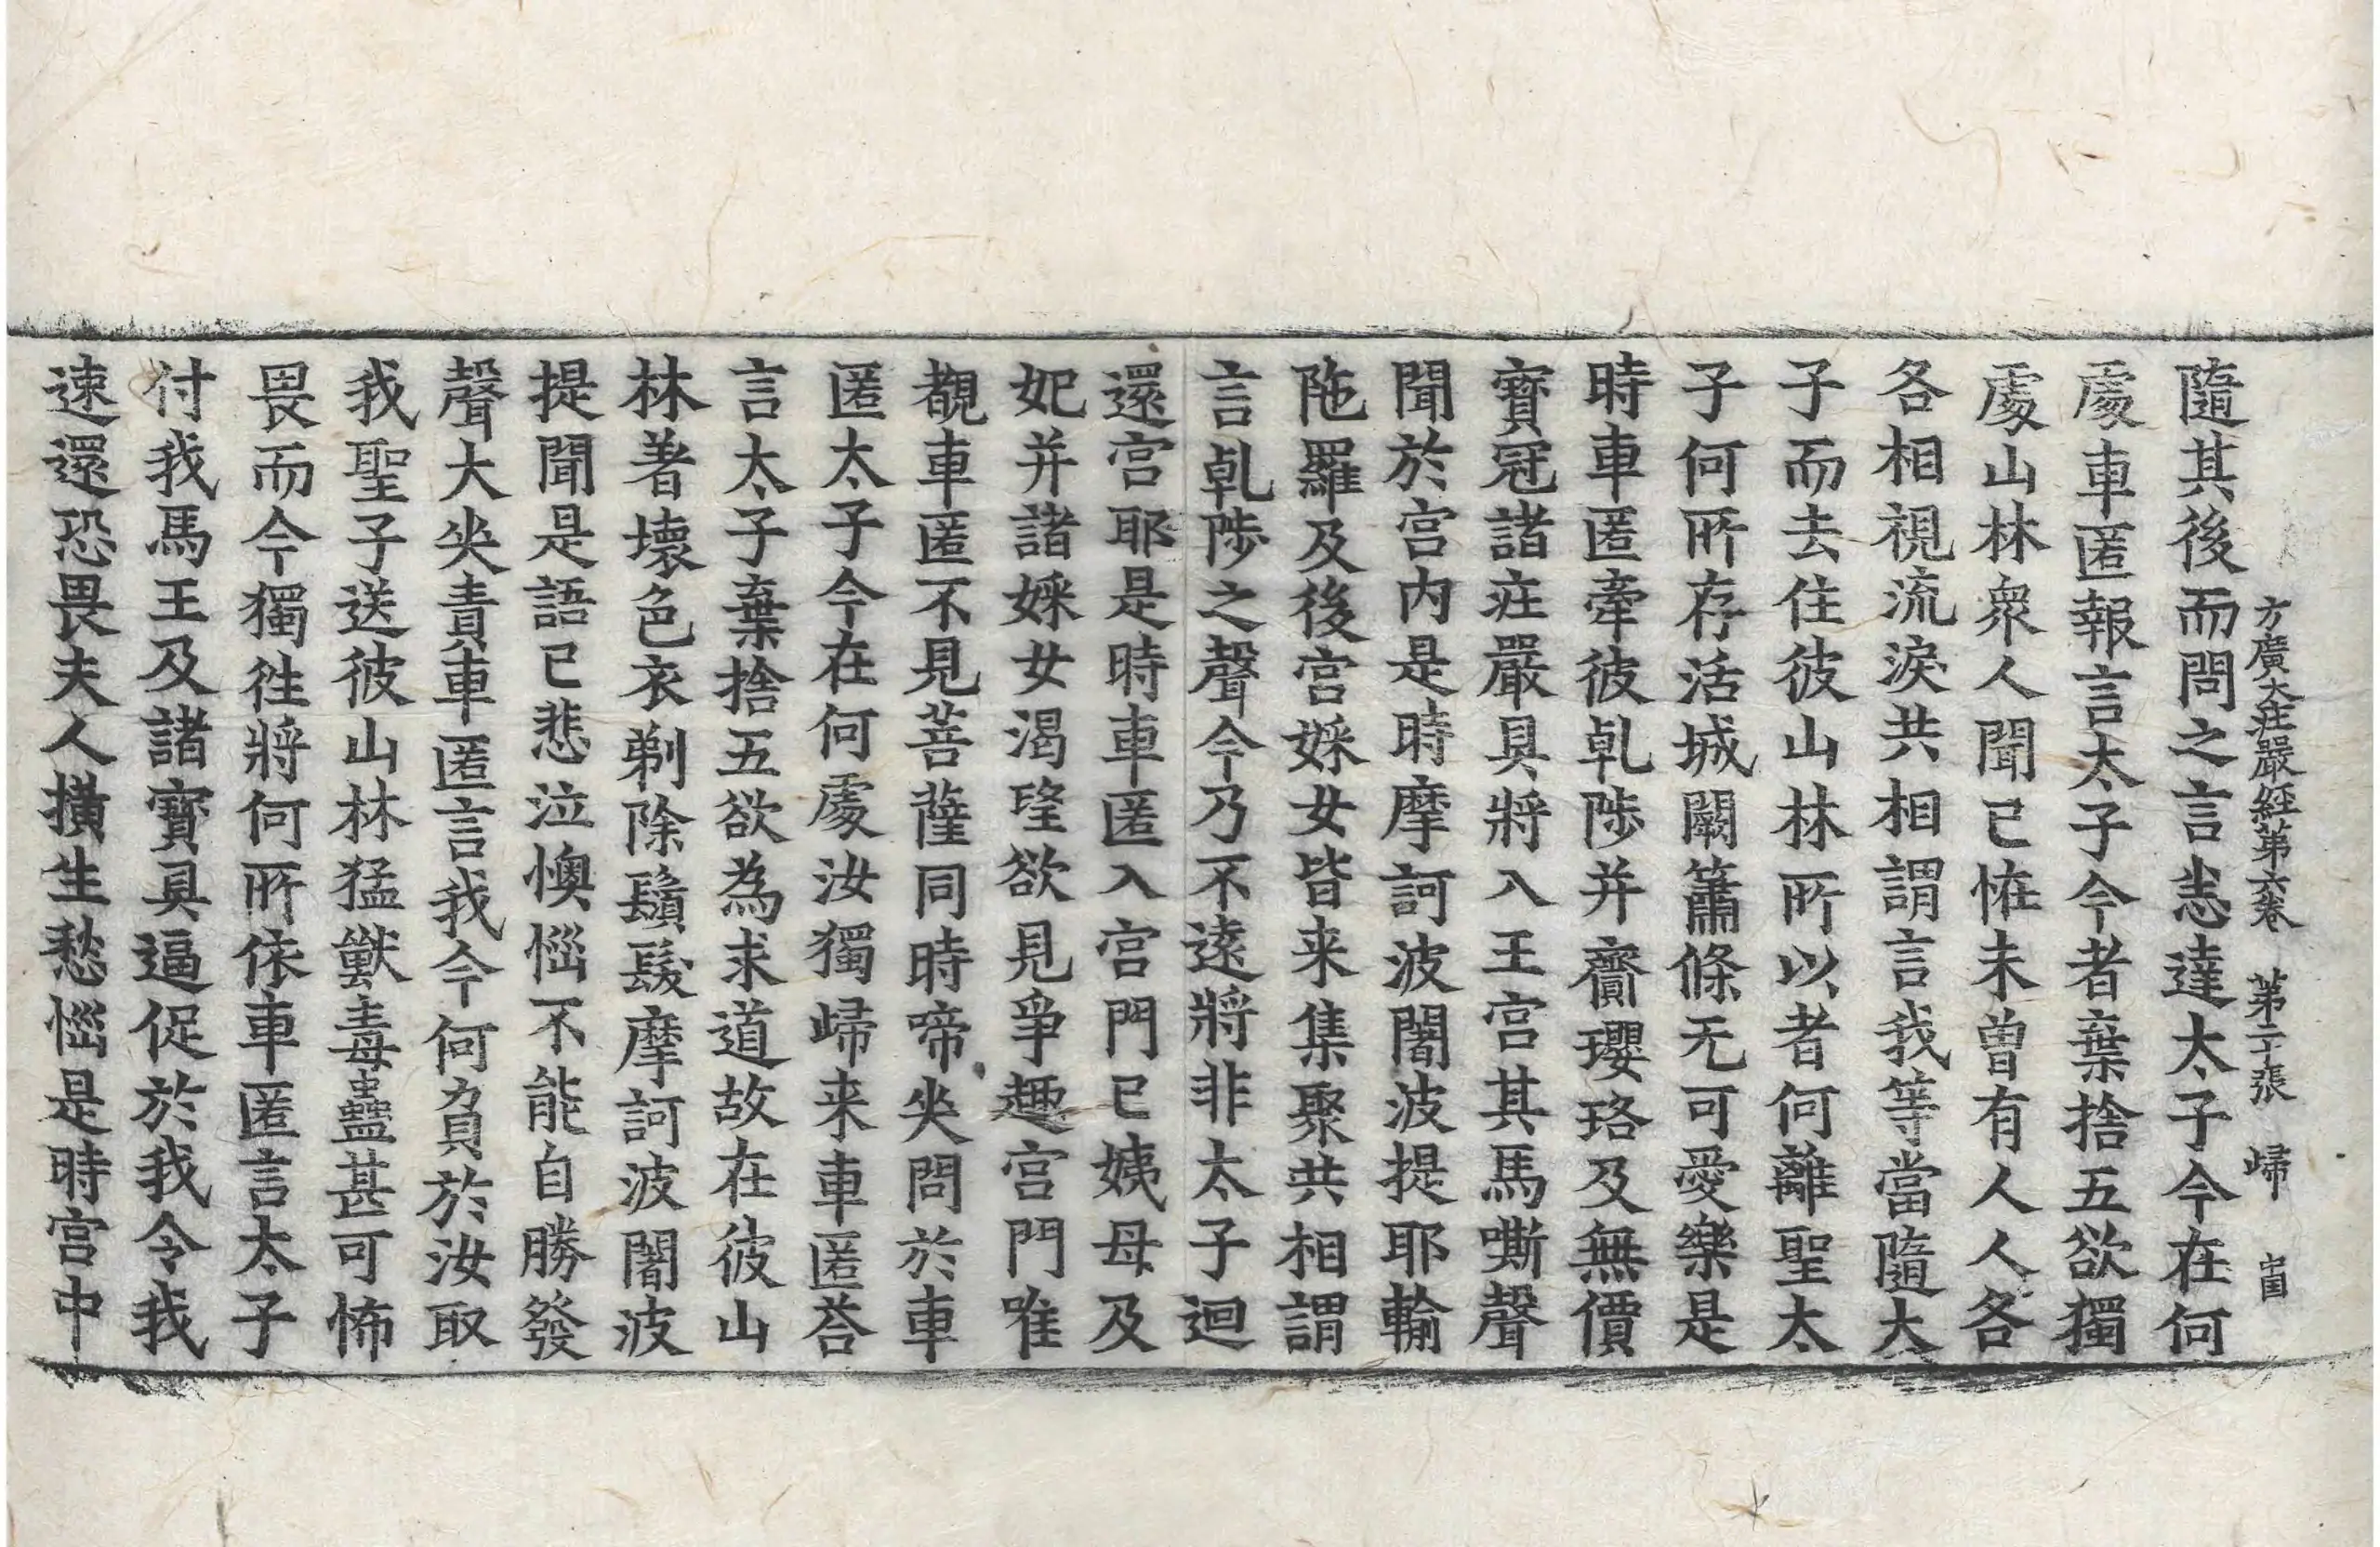 方廣大莊嚴經第六卷 第二十張 歸
隨其後而問之言悉達太子今在何
處車匿報言太子今者棄捨五欲獨
處山林衆人聞已恠未曾有人人各
各相視流淚共相謂言我等當隨太
子而去住彼山林所以者何離聖太
子何所存活城闕簫條无可愛樂是
時車匿牽彼乹陟并齎瓔珞及無價
寶冠諸莊嚴具將入王宮其馬嘶聲
聞於宮内是時摩訶波闍波提耶輸
陁羅及後宮婇女皆来集聚共相謂
言乹陟之聲今乃不遠將非太子迴
還宮耶是時車匿入宮門已姨母及
妃并諸婇女渴望欲見爭趣宮門唯
覩車匿不見菩薩同時啼哭問於車
匿太子今在何處汝獨歸来車匿荅
言太子棄捨五欲為求道故在彼山
林著壞色衣剃除鬚髮摩訶波闍波
提聞是語已悲泣懊惱不能自勝發
聲大哭責車匿言我今何負於汝取
我聖子送彼山林猛獸毒蟲甚可怖
畏而今獨往將何所依車匿言太子
付我馬王及諸寶具逼促於我令我
速還恐畏夫人撗生愁惱是時宮中